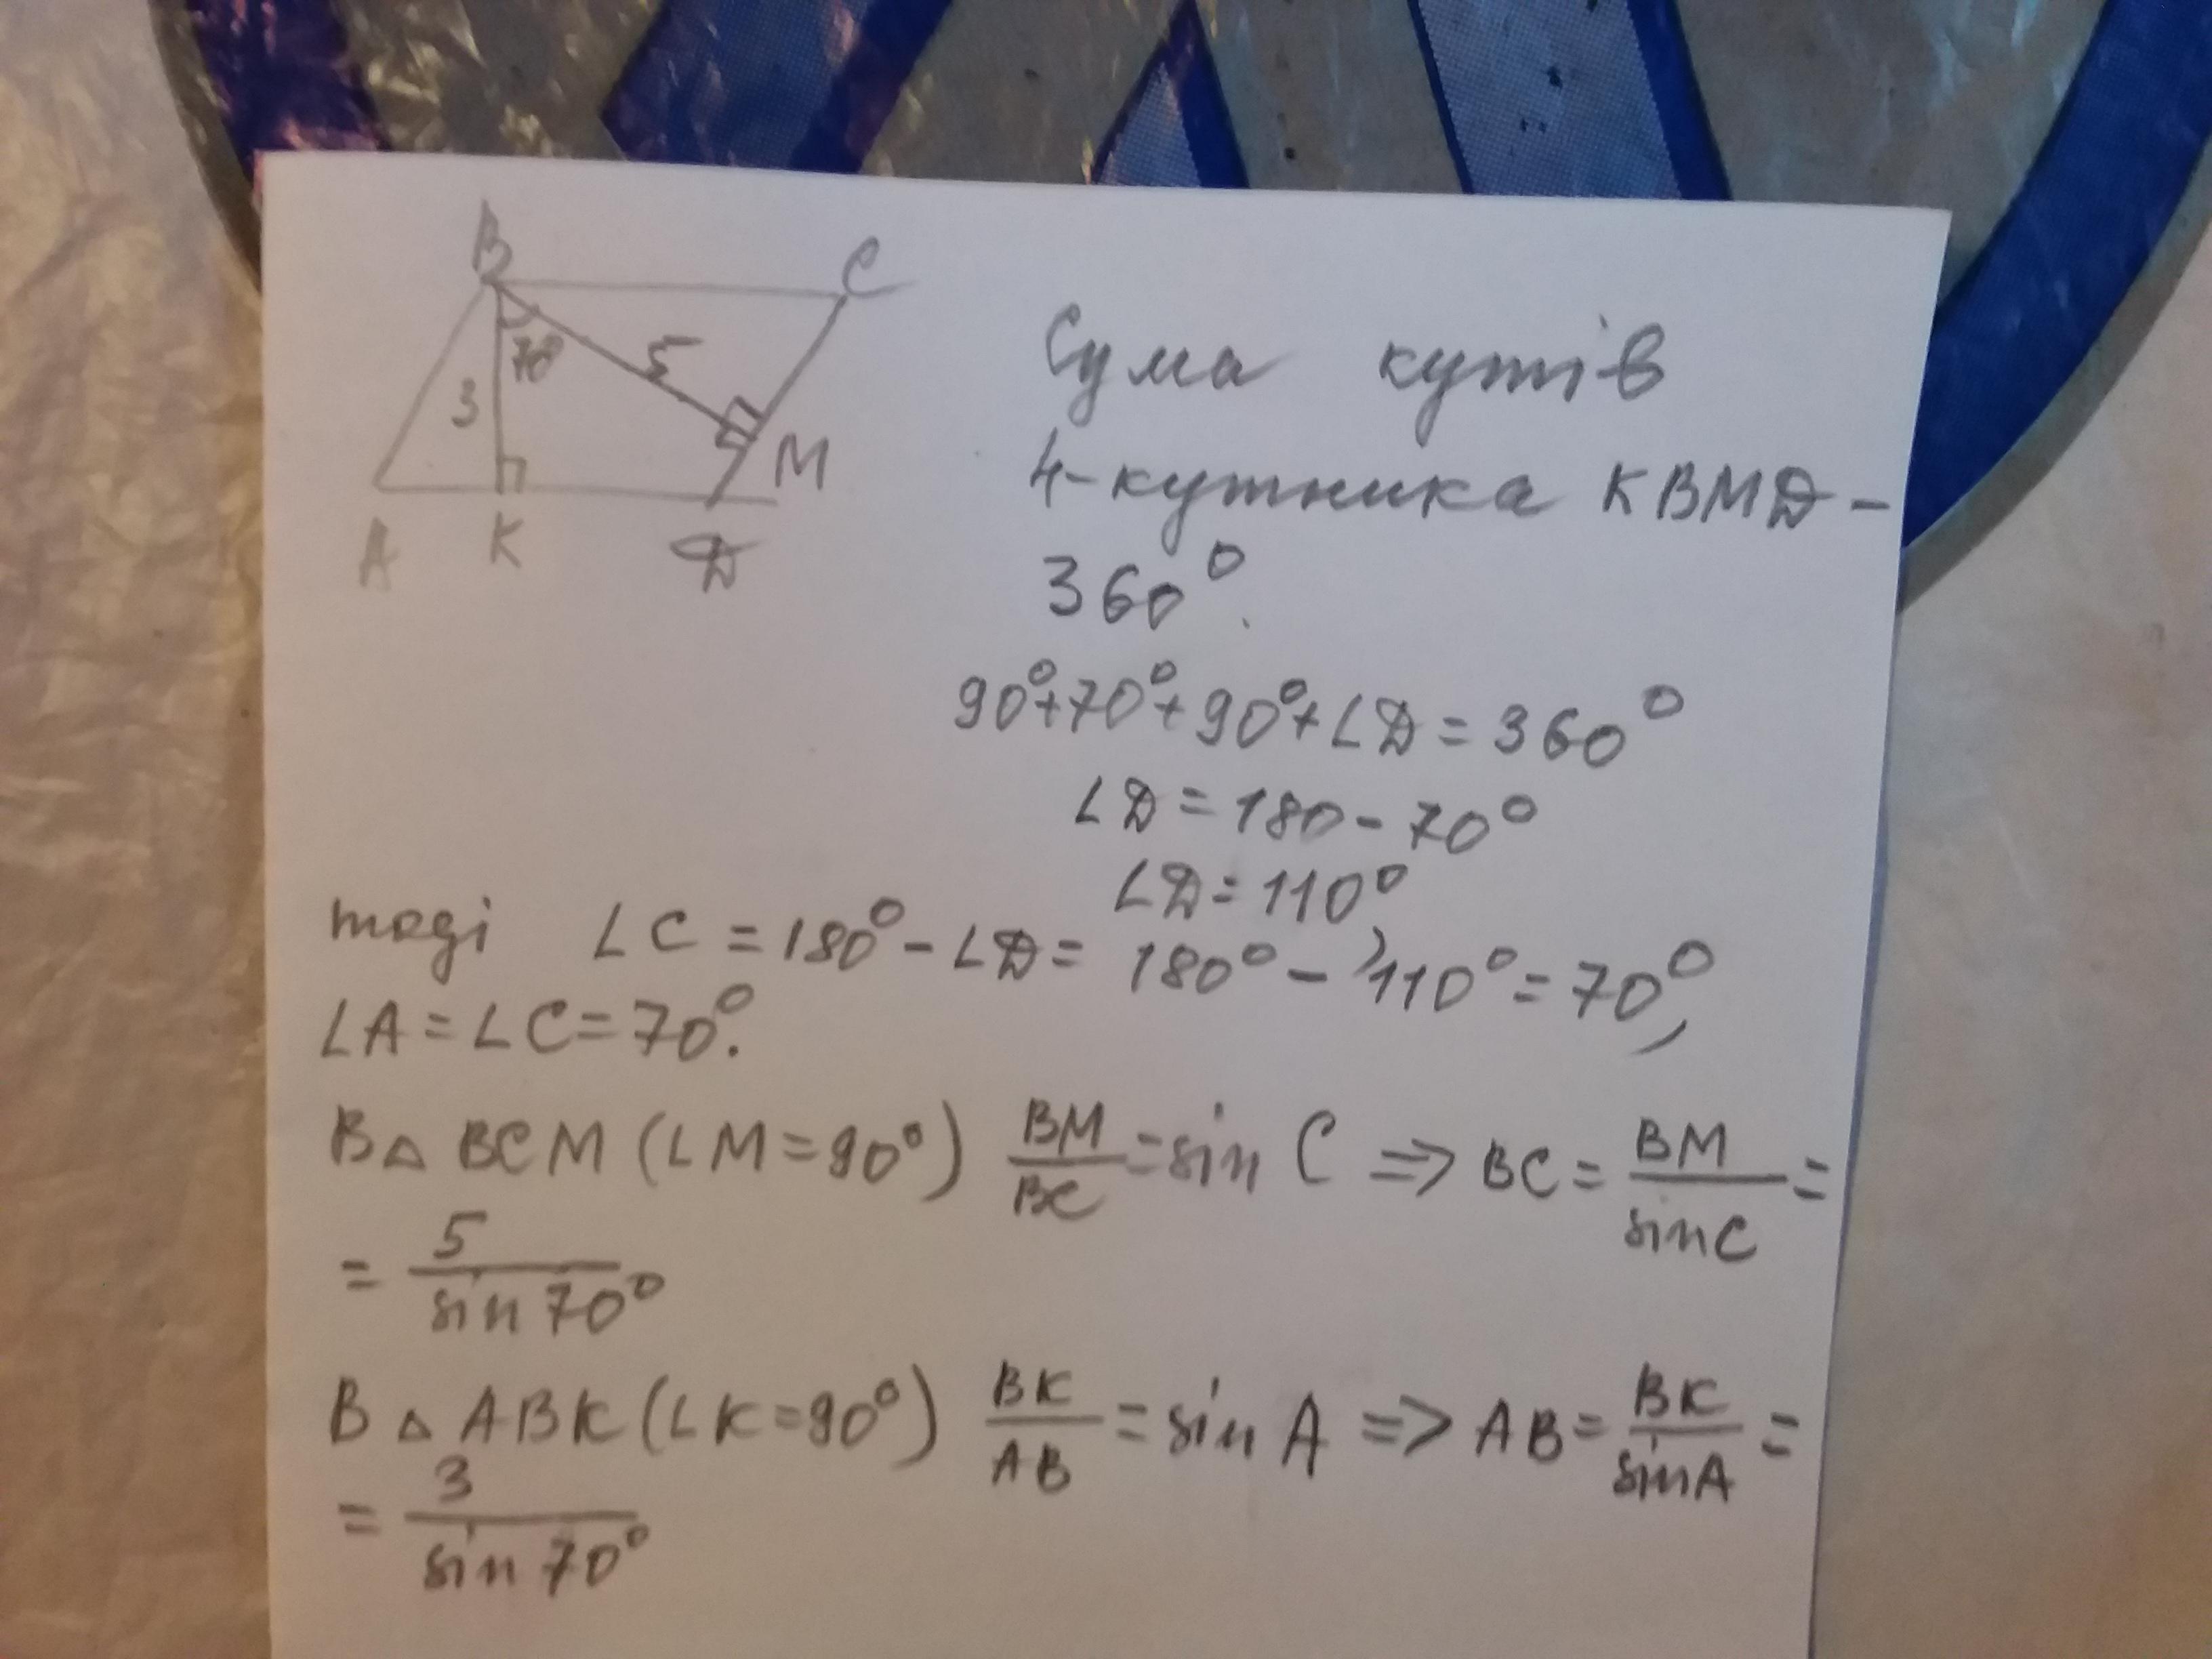 B C
70° 5
3
M
A K D
Сума кутів
4-кутника KBMD -
360°.
90°+70°+90°+∠D = 360°
∠D = 180 - 70°
∠D = 110°
тоді ∠C = 180° - ∠D = 180° - 110° = 70°,
∠A = ∠C = 70°.
В △ BCM (∠M = 90°) BM/BC = sin C => BC = BM/sin C =
= 5/sin 70°
В △ ABK (∠K = 90°) BK/AB = sin A => AB = BK/sin A =
= 3/sin 70°